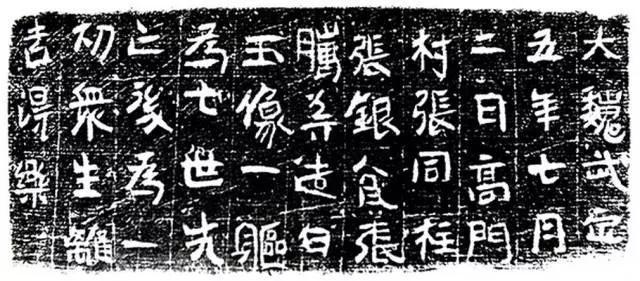 大魏武定
五年七月
二日高門
村張同柱
張銀食張
騰等造白
玉像一軀
為七世先
亡後為一
切衆生離
苦得樂